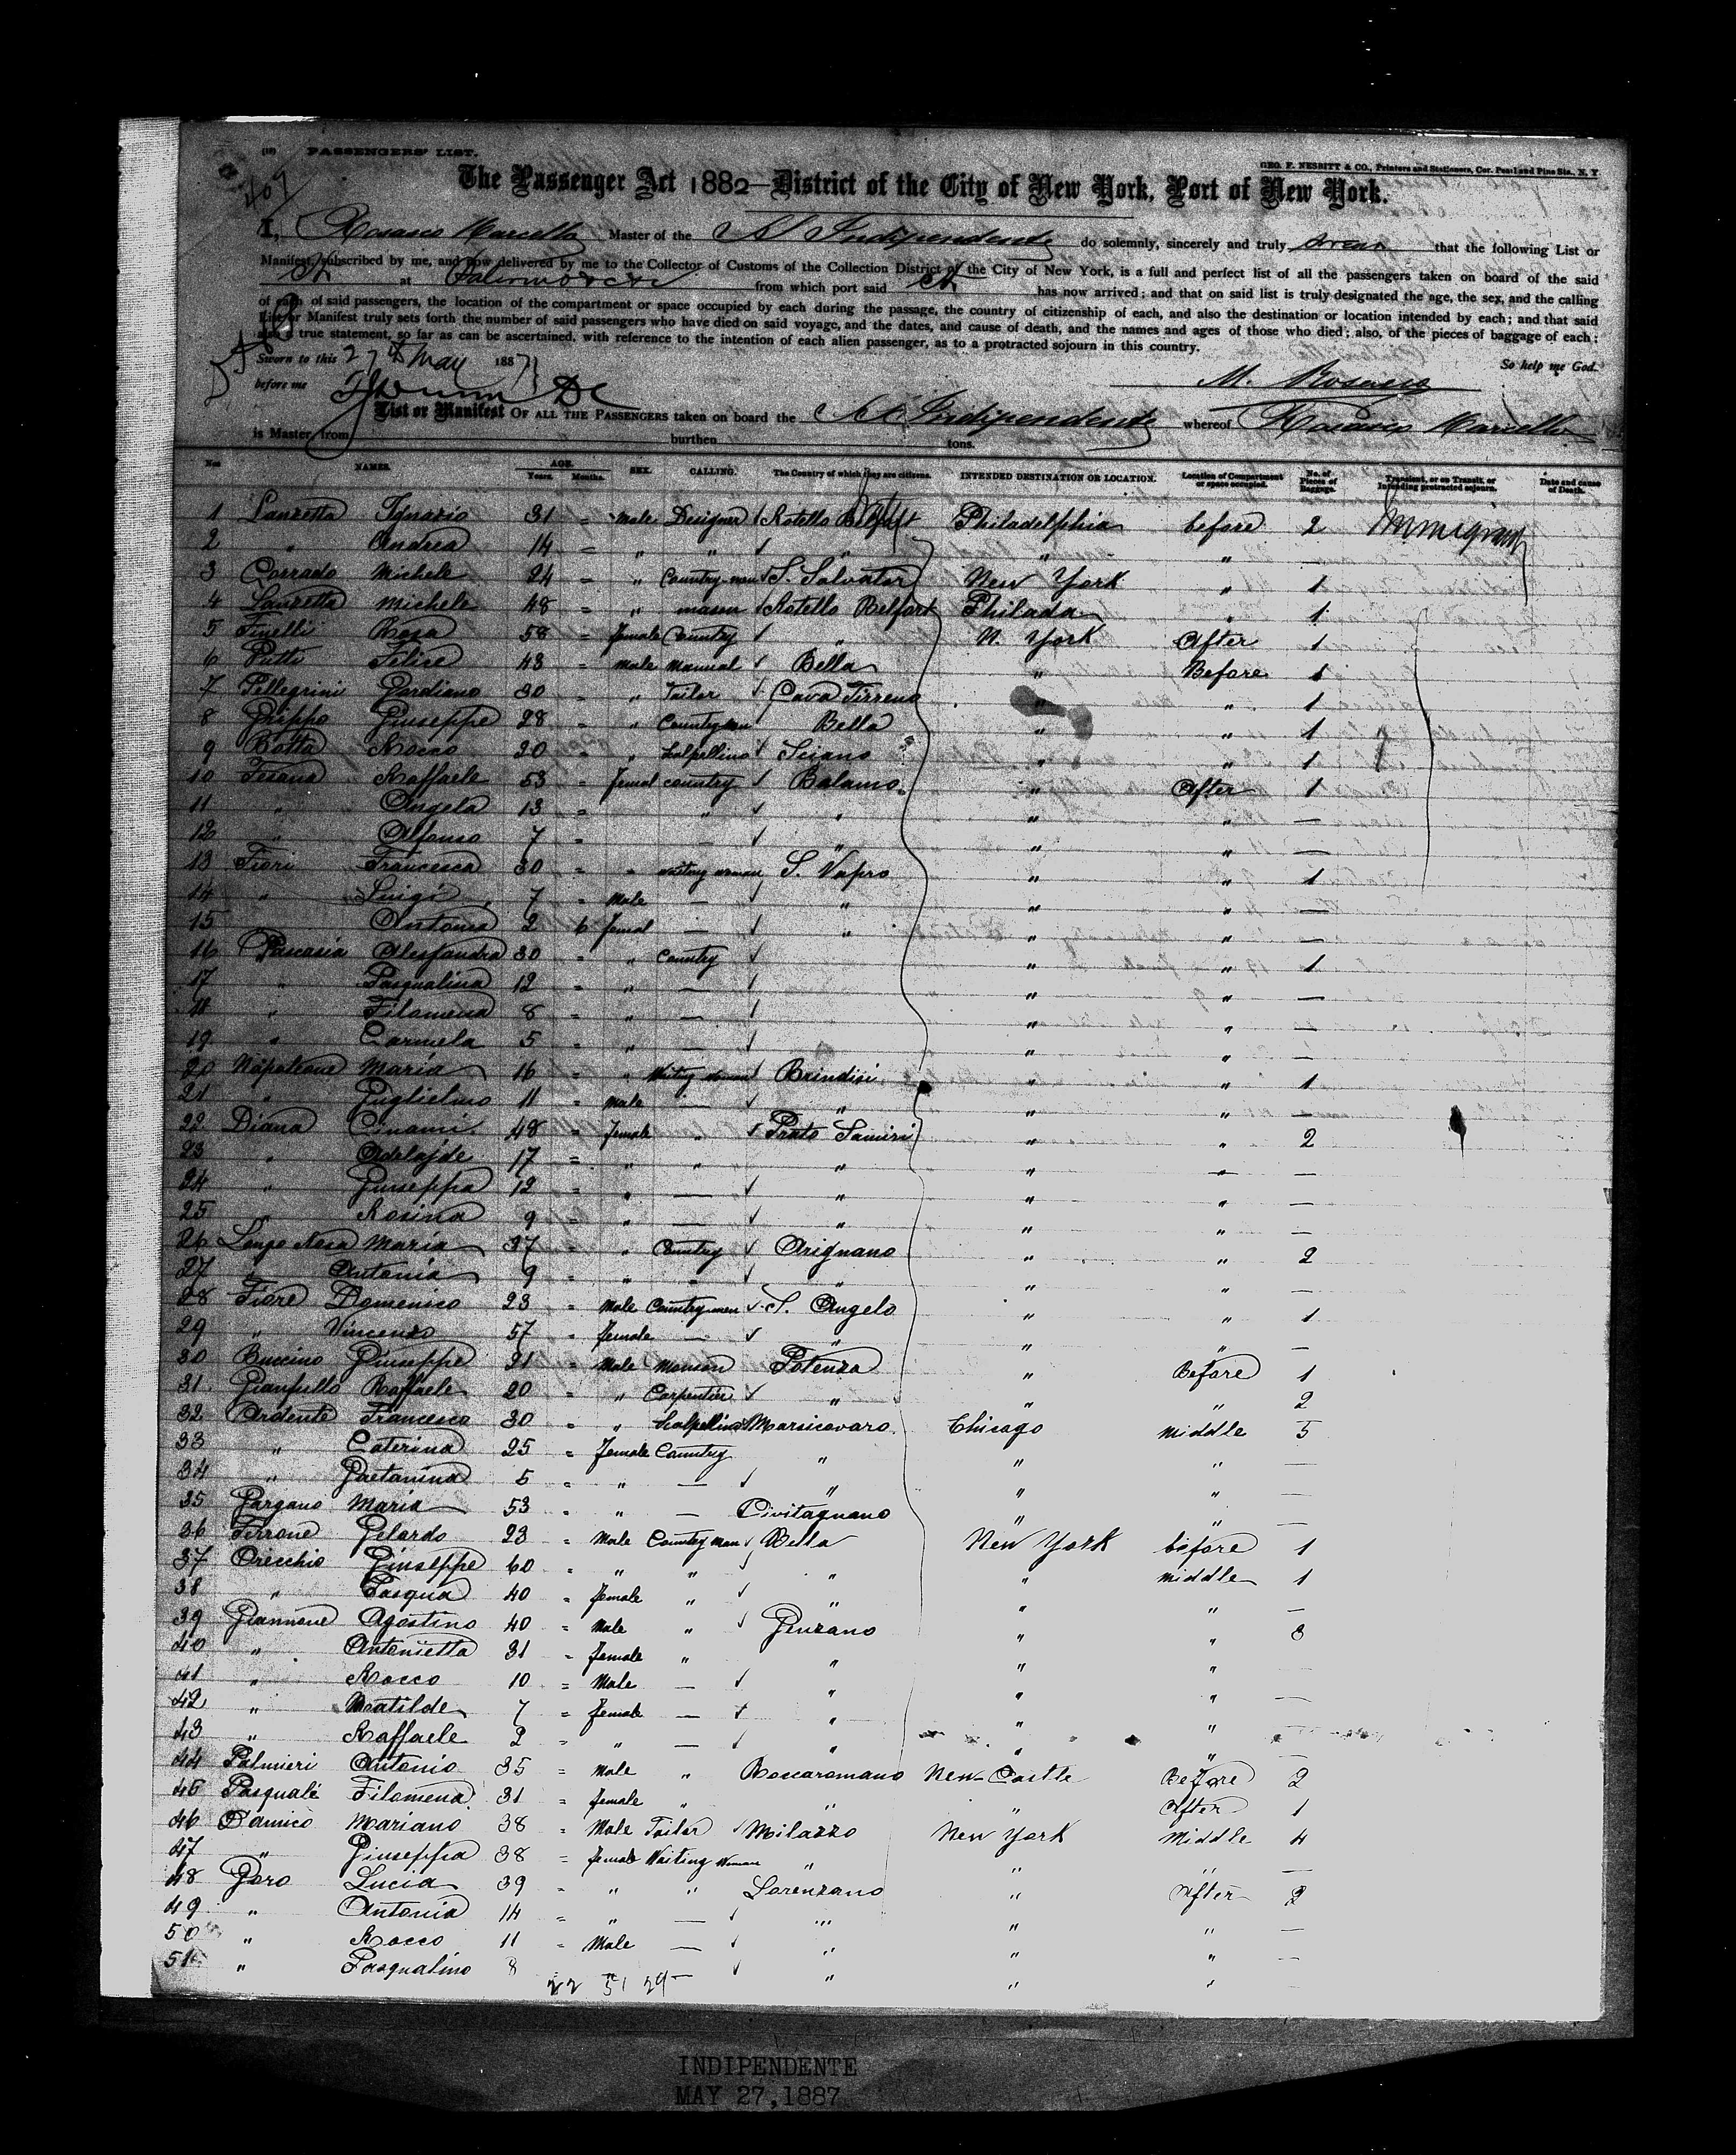 (18) PASSENGERS' LIST.
GEO. F. NESBITT & CO., Printers and Stationers, Cor. Pearl and Pine Sts., N. Y.
409
The Passenger Act 1882—District of the City of New York, Port of New York.
I, Rosasco Marcello Master of the St Indipendente do solemnly, sincerely and truly swear that the following List or
Manifest, subscribed by me, and now delivered by me to the Collector of Customs of the Collection District of the City of New York, is a full and perfect list of all the passengers taken on board of the said
St at Palermo from which port said St has now arrived; and that on said list is truly designated the age, the sex, and the calling
of each of said passengers, the location of the compartment or space occupied by each during the passage, the country of citizenship of each, and also the destination or location intended by each; and that said
List or Manifest truly sets forth the number of said passengers who have died on said voyage, and the dates, and cause of death, and the names and ages of those who died; also, of the pieces of baggage of each;
also a true statement, so far as can be ascertained, with reference to the intention of each alien passenger, as to a protracted sojourn in this country.
So help me God.
Sworn to this 27th May 1887
before me
M. Rosasco
List or Manifest OF ALL THE PASSENGERS taken on board the St Indipendente whereof Rosasco Marcello
is Master, from burthen tons.
Nos NAMES. AGE. Years. Months. SEX. CALLING. The Country of which they are citizens. INTENDED DESTINATION OR LOCATION. Location of Compartment or space occupied. No. of Pieces of Baggage. Transient, or on Transit, or Intending protracted sojourn. Date and cause of Death.
1 Lanzetta Ignazio 31 = Male Designer Rotello Belfort Philadelphia before 2 Immigrant
2 " Andrea 14 = " " " " " —
3 Corrado Michele 24 = " Country-man S. Salvator New York " 1
4 Lanzetta Michele 48 = " mason Rotello Belfort Philada " 1
5 Finelli Rosa 58 = female Country " N. York After 1
6 Putti Felice 43 = male Manual Bella " Before 1
7 Pellegrini Gordiano 30 = " Tailor Cava Tirreno " " 1
8 Grippo Giuseppe 28 = " Countryman Bella " " 1
9 Botta Rocco 20 = " Scalpellino Sciano " " 1
10 Tesano Raffaele 53 = femal country Balamo " After 1
11 " Angela 13 = " " " " —
12 " Alfonso 7 = — " " " —
13 Fiori Francesca 30 = " waiting woman S. Vapro " " 1
14 " Luigi 7 = Male — " " " —
15 Antonia 2 6 femal — " " " —
16 Pascasia Alessandra 30 = " Country " " 1
17 " Pasqualina 12 = " — " " —
18 " Filomena 8 = " — " " —
19 " Carmela 5 = " — " " —
20 Napoleone Maria 16 = " Waiting woman Brindisi " " 1
21 " Guglielmo 11 = Male — " " " —
22 Diana Cinami 48 = female " Prato " " 2
23 " Adelajde 17 = " " " " " —
24 " Giuseppa 12 = " — " " " —
25 " Rosina 9 = " — " " " —
26 Maria 37 = " Country Arignano " " 2
27 " Antonia 9 = " " " " " —
28 Fiore Domenico 23 = Male Country-man S. Angelo " " 1
29 " Vincenzo 57 = female — " " " —
30 Buccino Giuseppe 21 = Male Manson Potenza " Before 1
31 Gianfullo Raffaele 20 = " Carpentier " " " 2
32 Ardente Francesco 30 = " Scalpellino Marsicovaro Chicago middle 5
33 " Caterina 25 = female Country " " " —
34 " Gaetanina 5 = " — " " " —
35 Gargano Maria 53 = " — Civitagnano " " —
36 Ferrone Gelardo 23 = Male Country man Bella New York before 1
37 Orecchio Giuseppe 60 = " " " " middle 1
38 " Pasqua 40 = female " " " " —
39 Giannone Agostino 40 = Male " Genzano " " 3
40 " Antonietta 31 = female " " " "
41 " Rocco 10 = Male — " " " —
42 " Matilde 7 = female — " " " —
43 " Raffaele 2 = " — " " " —
44 Palmieri Antonio 35 = Male " Roccaromano New-Castle Before 2
45 Pasquale Filomena 31 = female " " " After 1
46 D'amico Mariano 38 = Male Tailor Milazzo New York Middle 4
47 " Giuseppa 38 = female Waiting Woman " " " —
48 Goro Lucia 39 = " " Lorenzano " After 2
49 " Antonia 14 = " — " " " —
50 " Rocco 11 = Male — " " " —
51 " Pasqualino 8 " " "
22 51 29
INDIPENDENTE
MAY 27,1887